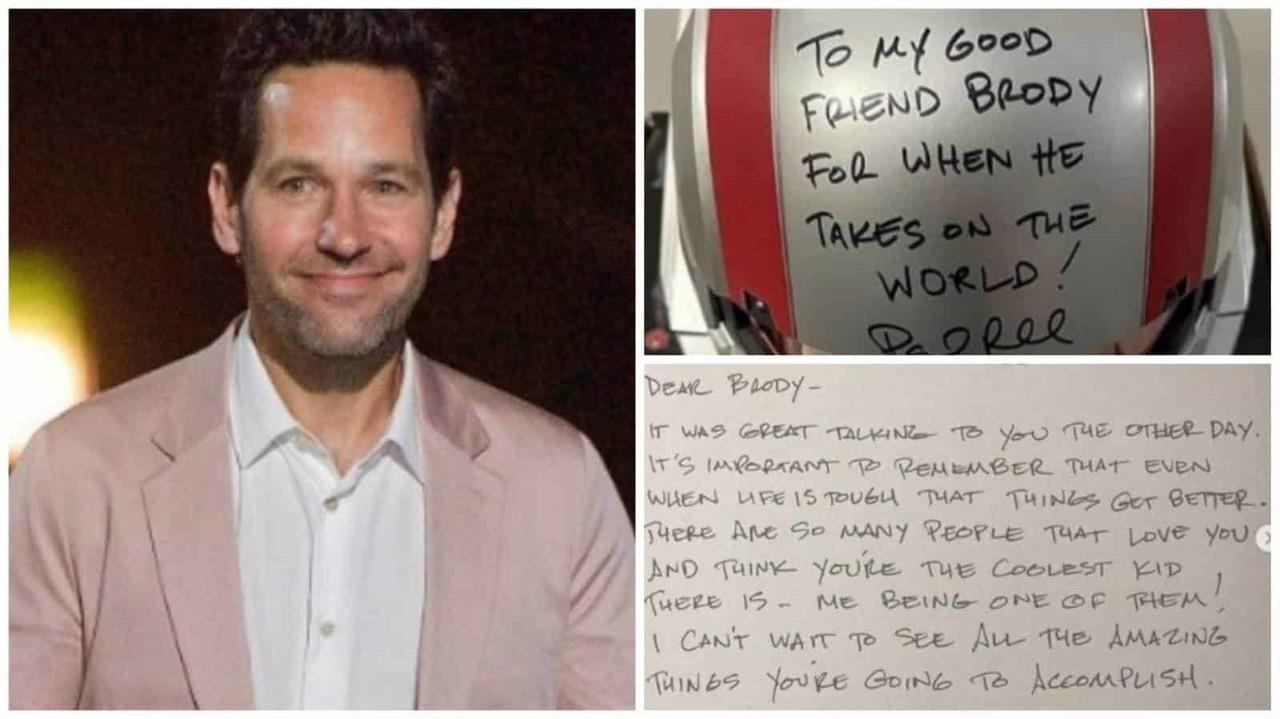 TO MY GOOD
FRIEND BRODY
FOR WHEN HE
TAKES ON THE
WORLD!
DEAR BRODY-
IT WAS GREAT TALKING TO YOU THE OTHER DAY.
IT'S IMPORTANT TO REMEMBER THAT EVEN
WHEN LIFE IS TOUGH THAT THINGS GET BETTER.
THERE ARE SO MANY PEOPLE THAT LOVE YOU
AND THINK YOU'RE THE COOLEST KID
THERE IS - ME BEING ONE OF THEM!
I CAN'T WAIT TO SEE ALL THE AMAZING
THINGS YOU'RE GOING TO ACCOMPLISH.